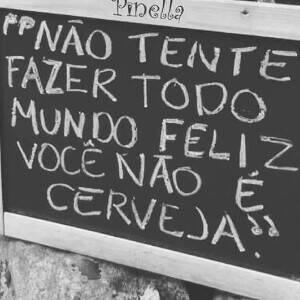 Pinella
"NÃO TENTE
FAZER TODO
MUNDO FELIZ
VOCÊ NÃO É
CERVEJA"